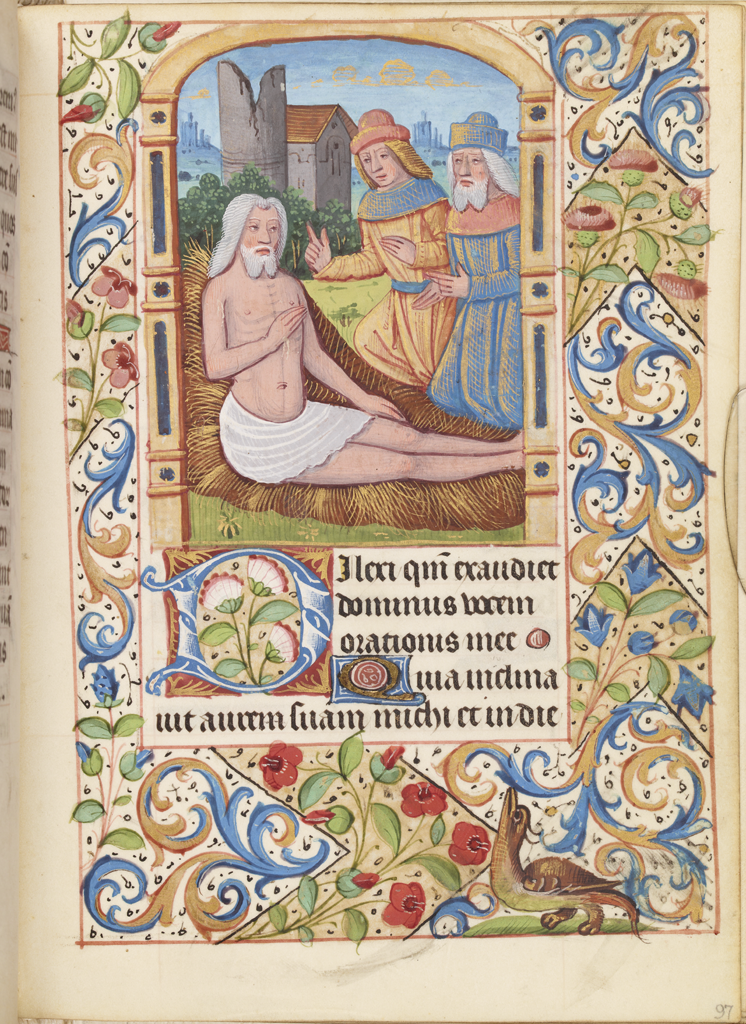 Dilexi qm̄ exaudiet
dominus vocem
orationis mee
Quia inclina
uit aurem suam michi et in die
97